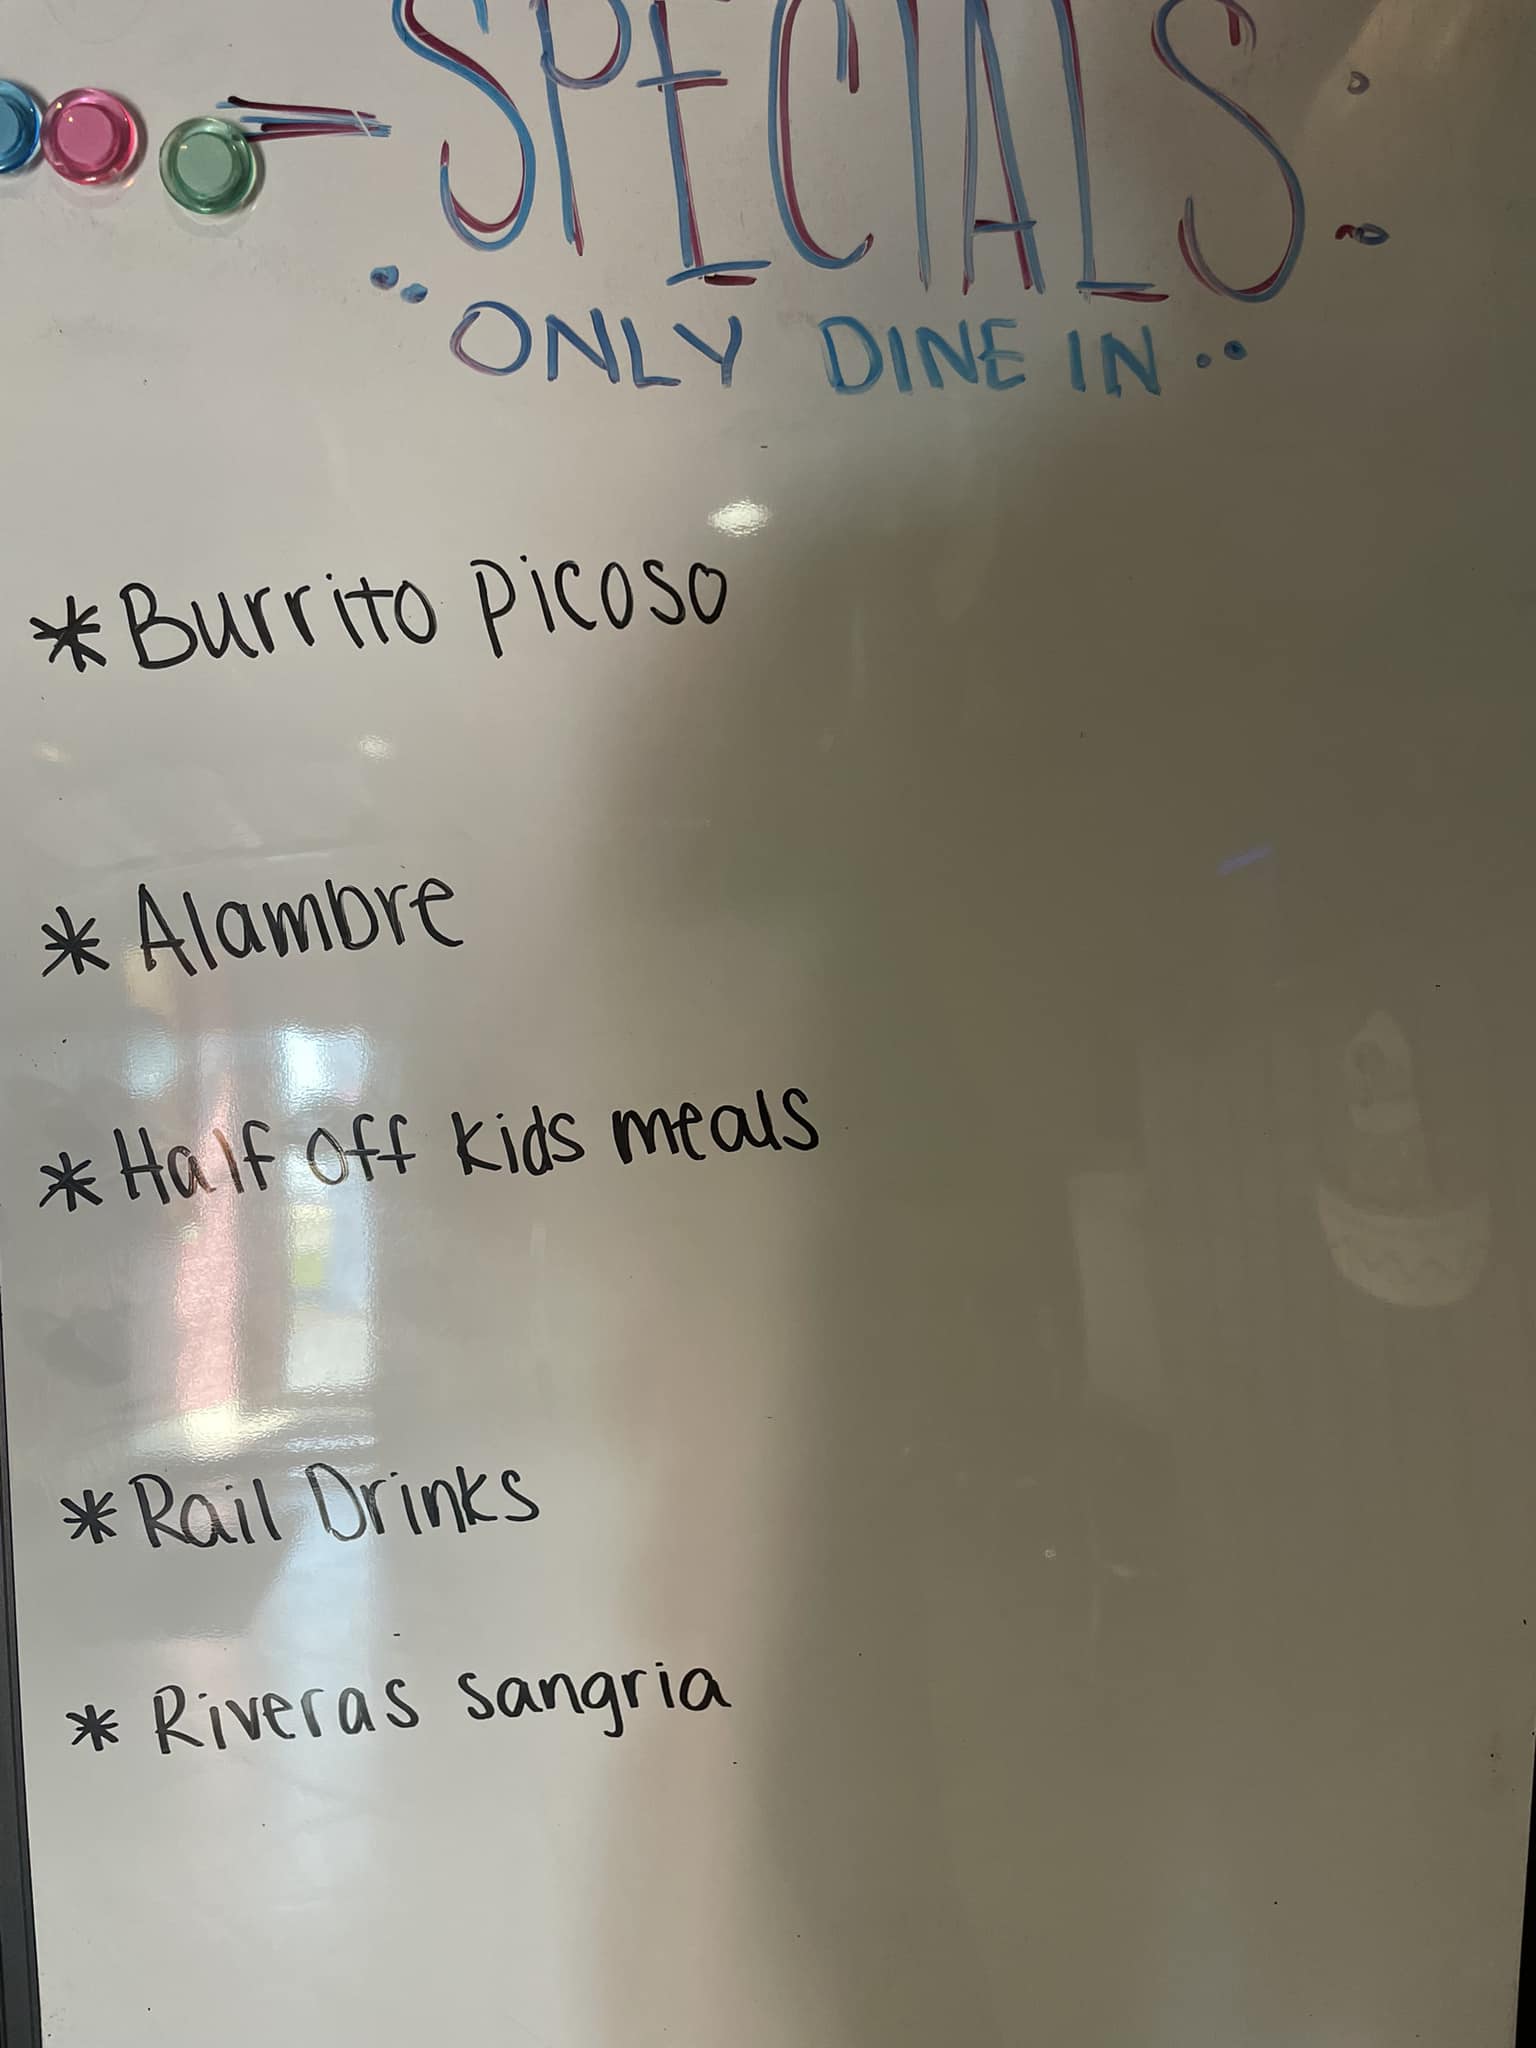 SPECIALS:
..ONLY DINE IN..
*Burrito Picoso
* Alambre
*Half off kids meals
*Rail Drinks
* Riveras sangria